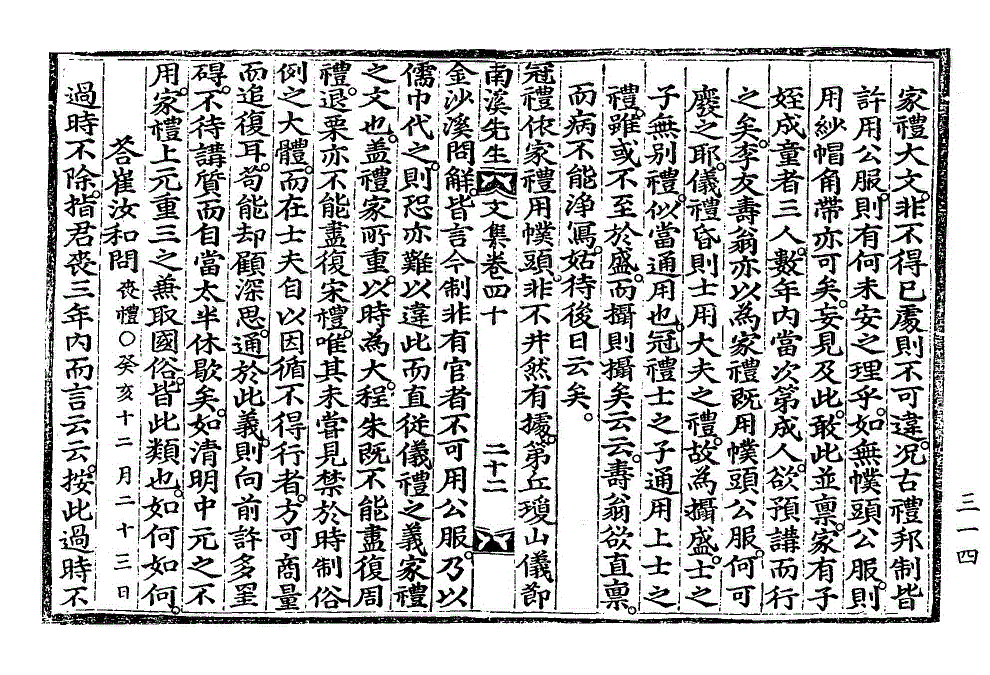 家禮大文。非不得已處則不可違。况古禮邦制皆
許用公服。則有何未安之理乎。如無幞頭公服。則
用紗帽角帶亦可矣。妄見及此。敢此並稟。家有子
姪成童者三人。數年內當次第成人。欲預講而行
之矣。李友壽翁亦以為家禮旣用幞頭公服。何可
廢之耶。儀禮昏則士用大夫之禮。故為攝盛。士之
子無別禮。似當通用也。冠禮士之子通用上士之
禮。雖或不至於盛。而攝則攝矣云云。壽翁欲直稟。
而病不能淨寫。姑待後日云矣。
冠禮依家禮用幞頭。非不井然有據。第丘瓊山儀節
南溪先生文集卷四十 二十二
金沙溪問解皆言今制非有官者不可用公服。乃以
儒巾代之。則恐亦難以違此而直從儀禮之義家禮
之文也。盖禮家所重。以時為大。程朱旣不能盡復周
禮。退栗亦不能盡復宋禮。唯其未嘗見禁於時制俗
例之大體。而在士夫自以因循不得行者。方可商量
而追復耳。苟能却顧深思。通於此義。則向前許多罣
碍。不待講質而自當太半休歇矣。如清明中元之不
用。家禮上元重三之兼取國俗。皆此類也。如何如何。
答崔汝和問 喪禮○癸亥十二月二十三日
過時不除。指君喪三年內而言云云。按此過時不
三一四